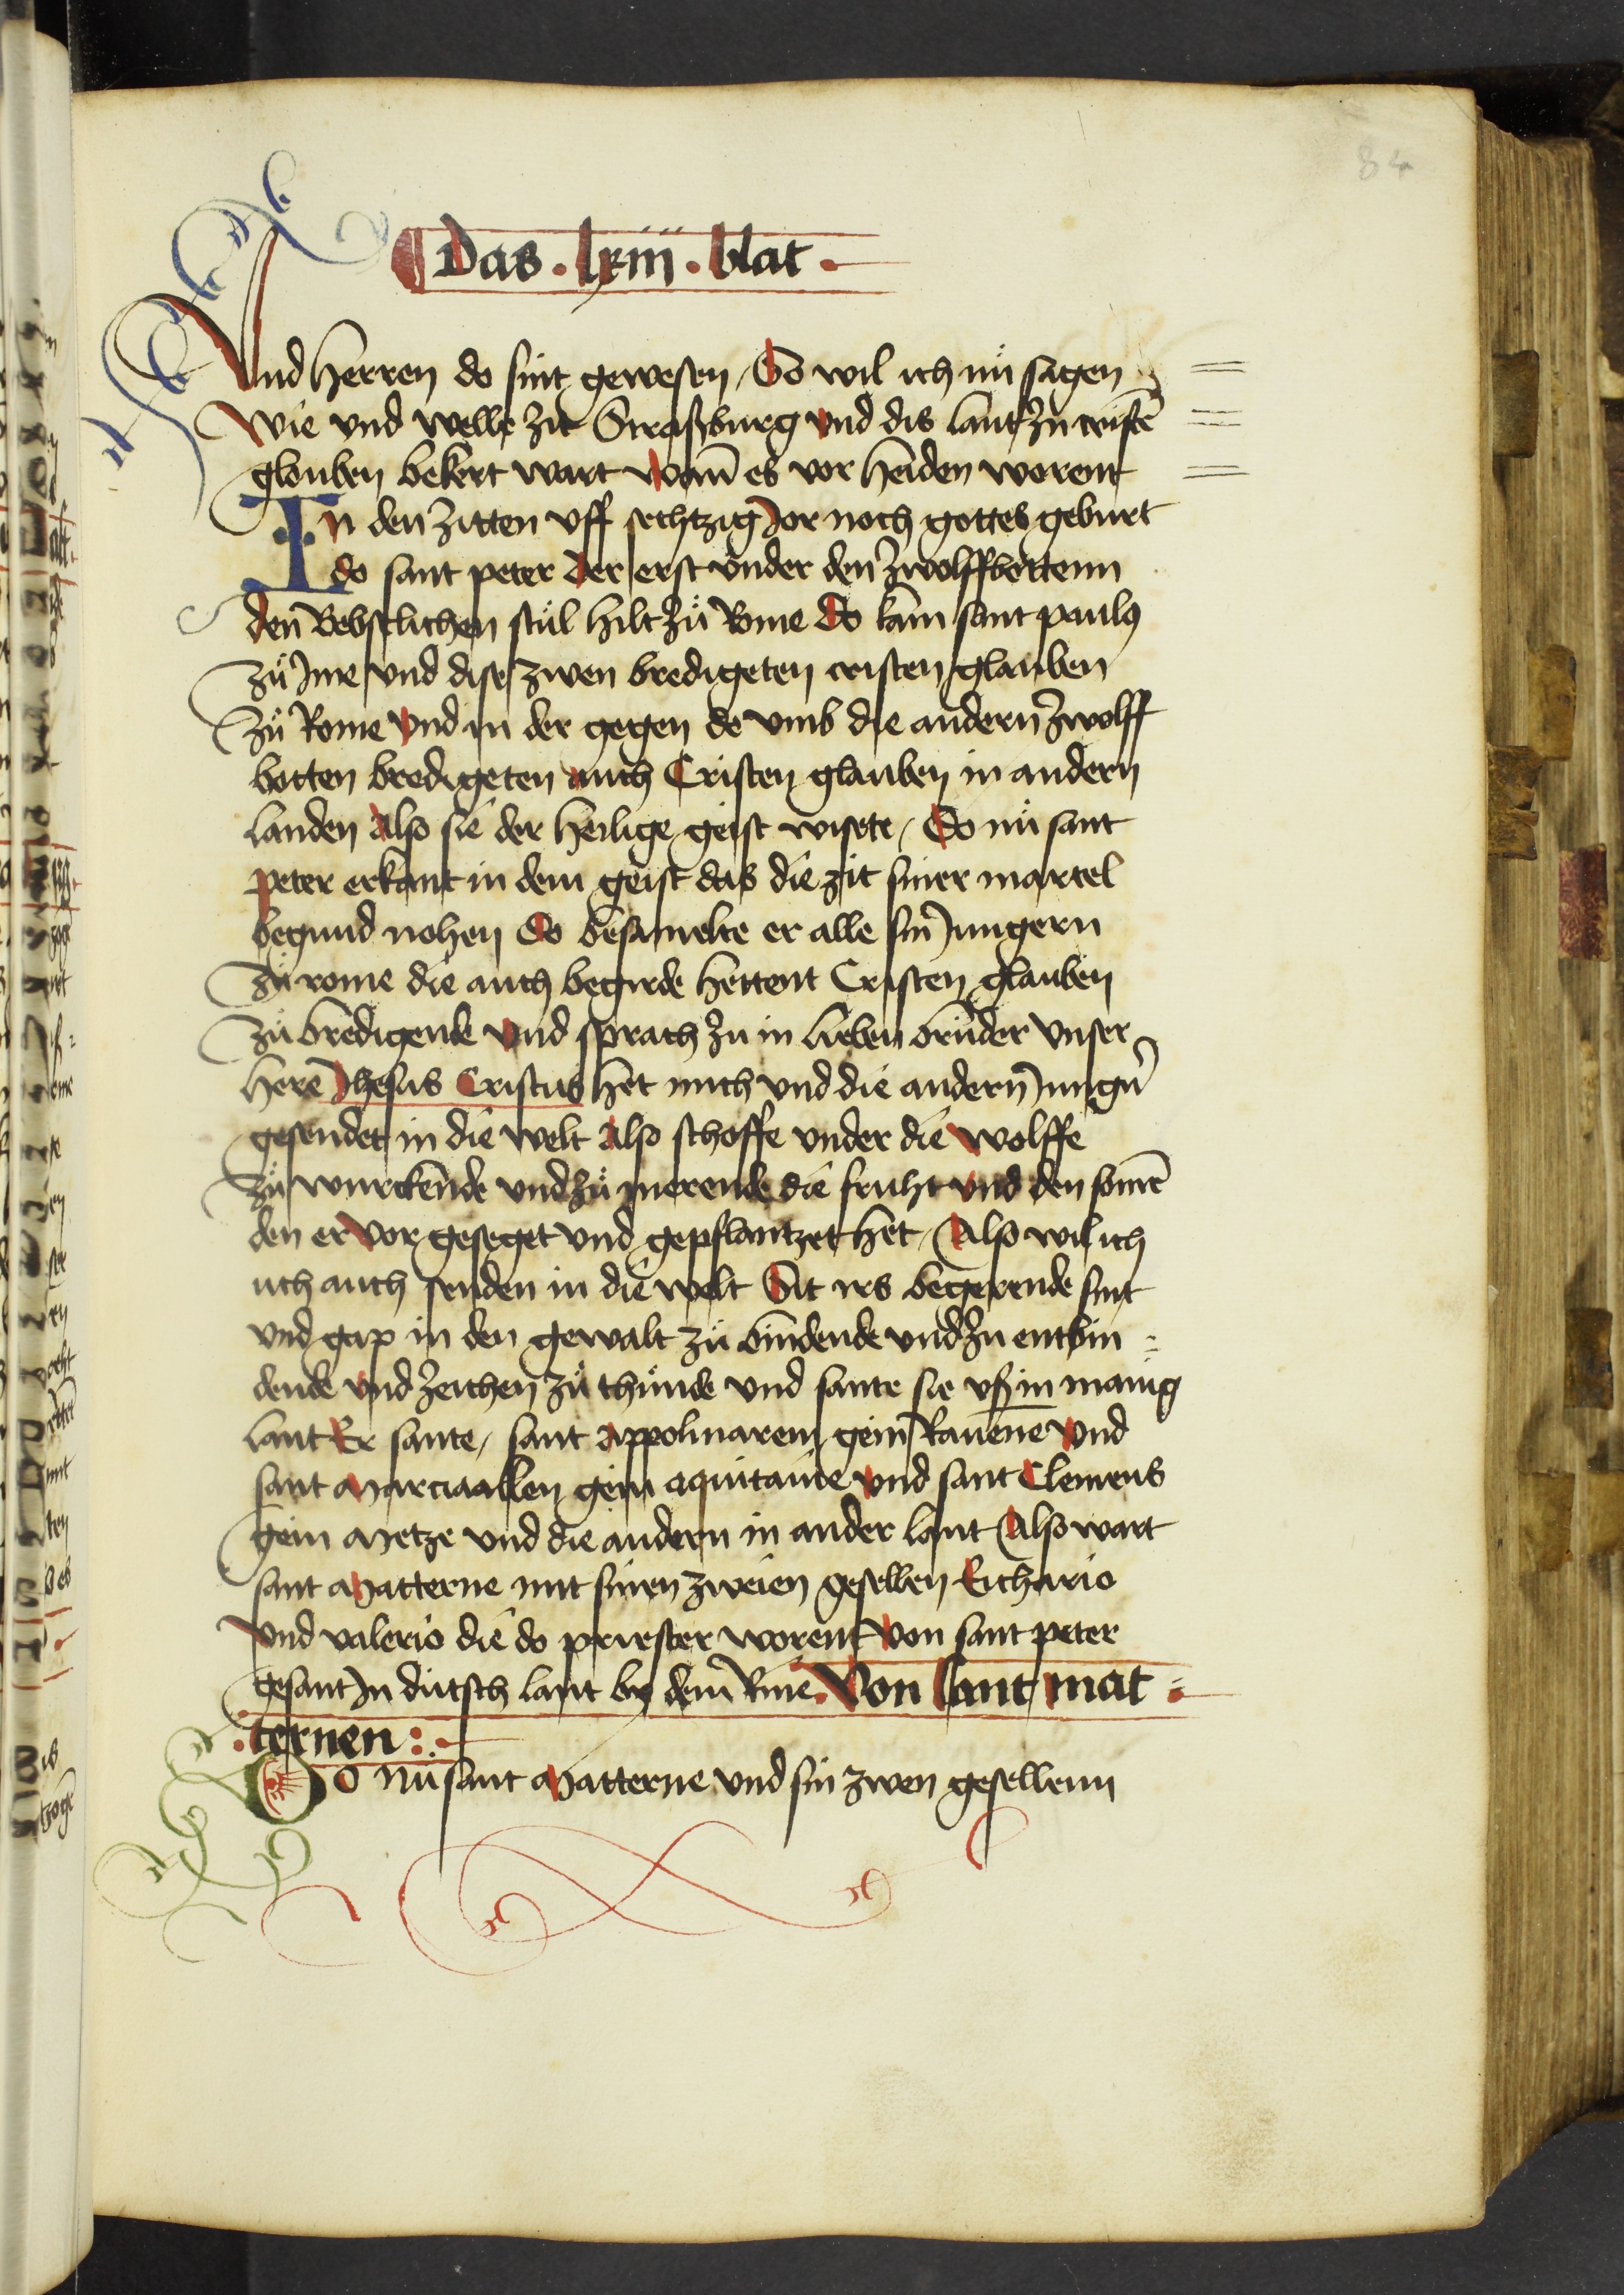 84
Das . lxiii . blat .
Vnd herren do sint gewesen / So wil ich nů sagen
Wie vnd welle zit Straßburg vnd dis lant zu cristē
glouben bekert wart Wann̄ es vor heiden worent
In den zitten vff sechtzig Jor noch gottes geburt
do sant peter der erst vnder den zwolffbottenn
den Bebstlichen stůl hilt zů Rome Do kam sant paulꝰ
zů Ime vnd dise zwen bredigeten cristen glauben
zů Rome vnd in der gegen do vmb die andern zwolff
botten bredigeten auch Cristen glauben in andern
landen Also sie der heilige geist wisete / Do nů sant
peter erkant in dem geist das die zit siner martel
begund nohen Do besamelte er alle sin Jungern
zů rome die auch begirde hettent Cristen glauben
zů bredigende vnd sprach zu in lieben brůder vnser
herē Jhesus Cristus het mich vnd die andern Jungn̄
gesendet in die welt Also schoffe vnder die wolffe
zů wurckende vnd zů merende die fruht vnd den somē
den er vor geseget vnd gepflantzet het / Also wil ich
uch auch senden in die welt Sit irs begerende sint
vnd gap in den gewalt zů bindende vnd zu entbin =
dende vnd zeichen zů thůnde vnd sante sie vß in manig
lant Er sante / sant Appolinarem gein Rauēne vnd
sant Marciaallen gein aquitanie vnd sant Clemens
gein Metze vnd die andern in ander lant Also wart
sant Matterne mit sinen zweien gesellen Euchario
vnd valerio die do priester worent von sant peter
gesant In dutsch lant by dem Rine . Von sant mat =
ternen :
Do nů sant Matterne vnd sin zwen gesellenn